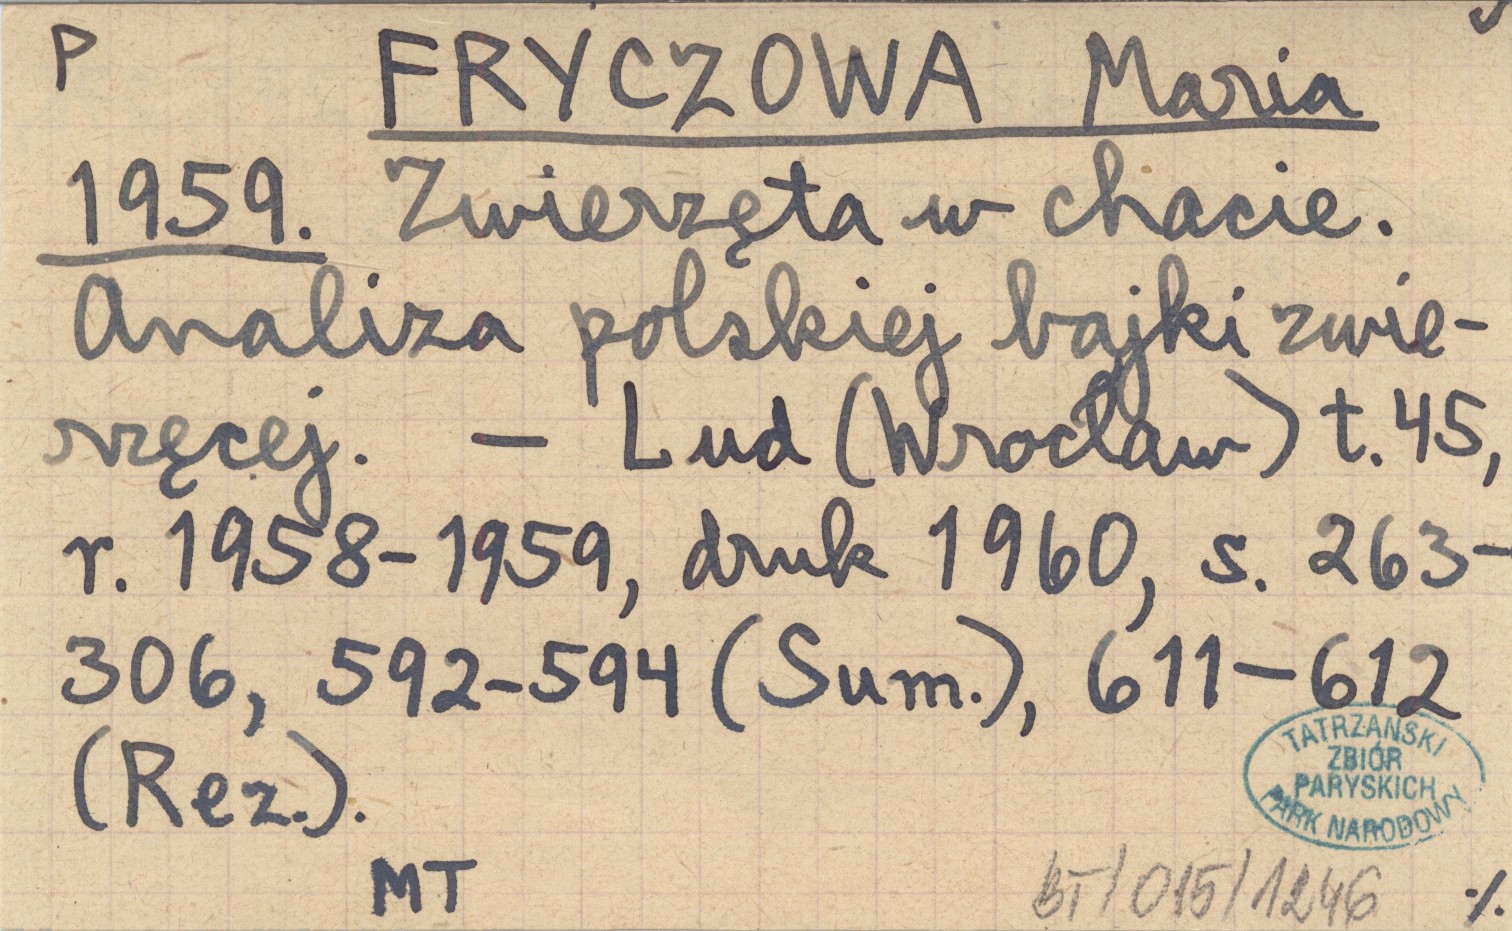 P FRYCZOWA Maria
1959. Zwierzęta w chacie.
Analiza polskiej bajki zwie-
rzęcej. — Lud (Wrocław) t. 45,
r. 1958-1959, druk 1960, s. 263-
306, 592-594 (Sum.), 611-612
(Rez.).
TATRZAŃSKI
ZBIÓR
PARYSKICH
PARK NARODOWY
MT
BT/015/1246 ./.